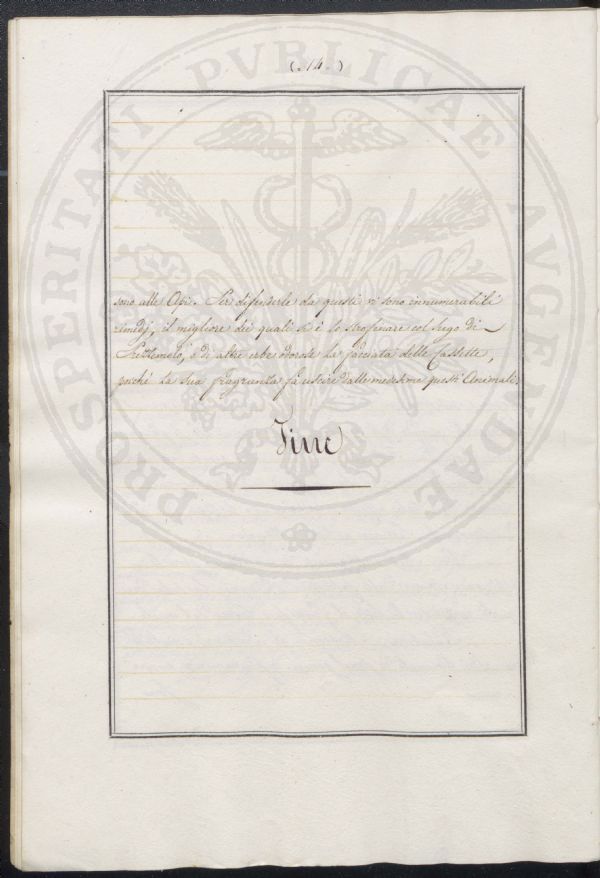 ( 14. )
PROSPERITATI PVBLICAE AVGENDAE
sono alle Api. Per difenderle da questi vi sono innumerabili
rimedj, il migliore dei quali si è lo strofinare col sugo di
o di altre erbe odorose la facciata delle Cassette,
poiché la sua fragranza fa uscire dalle medesime questi Animali.
Fine